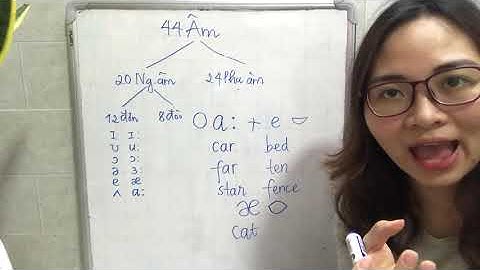 44 Âm
20 Ng.âm 24 Phụ âm
12 đơn 8 đôi
ɪ ɪ:
ʊ u:
ɔ ɔ:
ə ɜ:
e æ
ʌ a:
a: + e
car bed
far ten
star fence
æ
cat